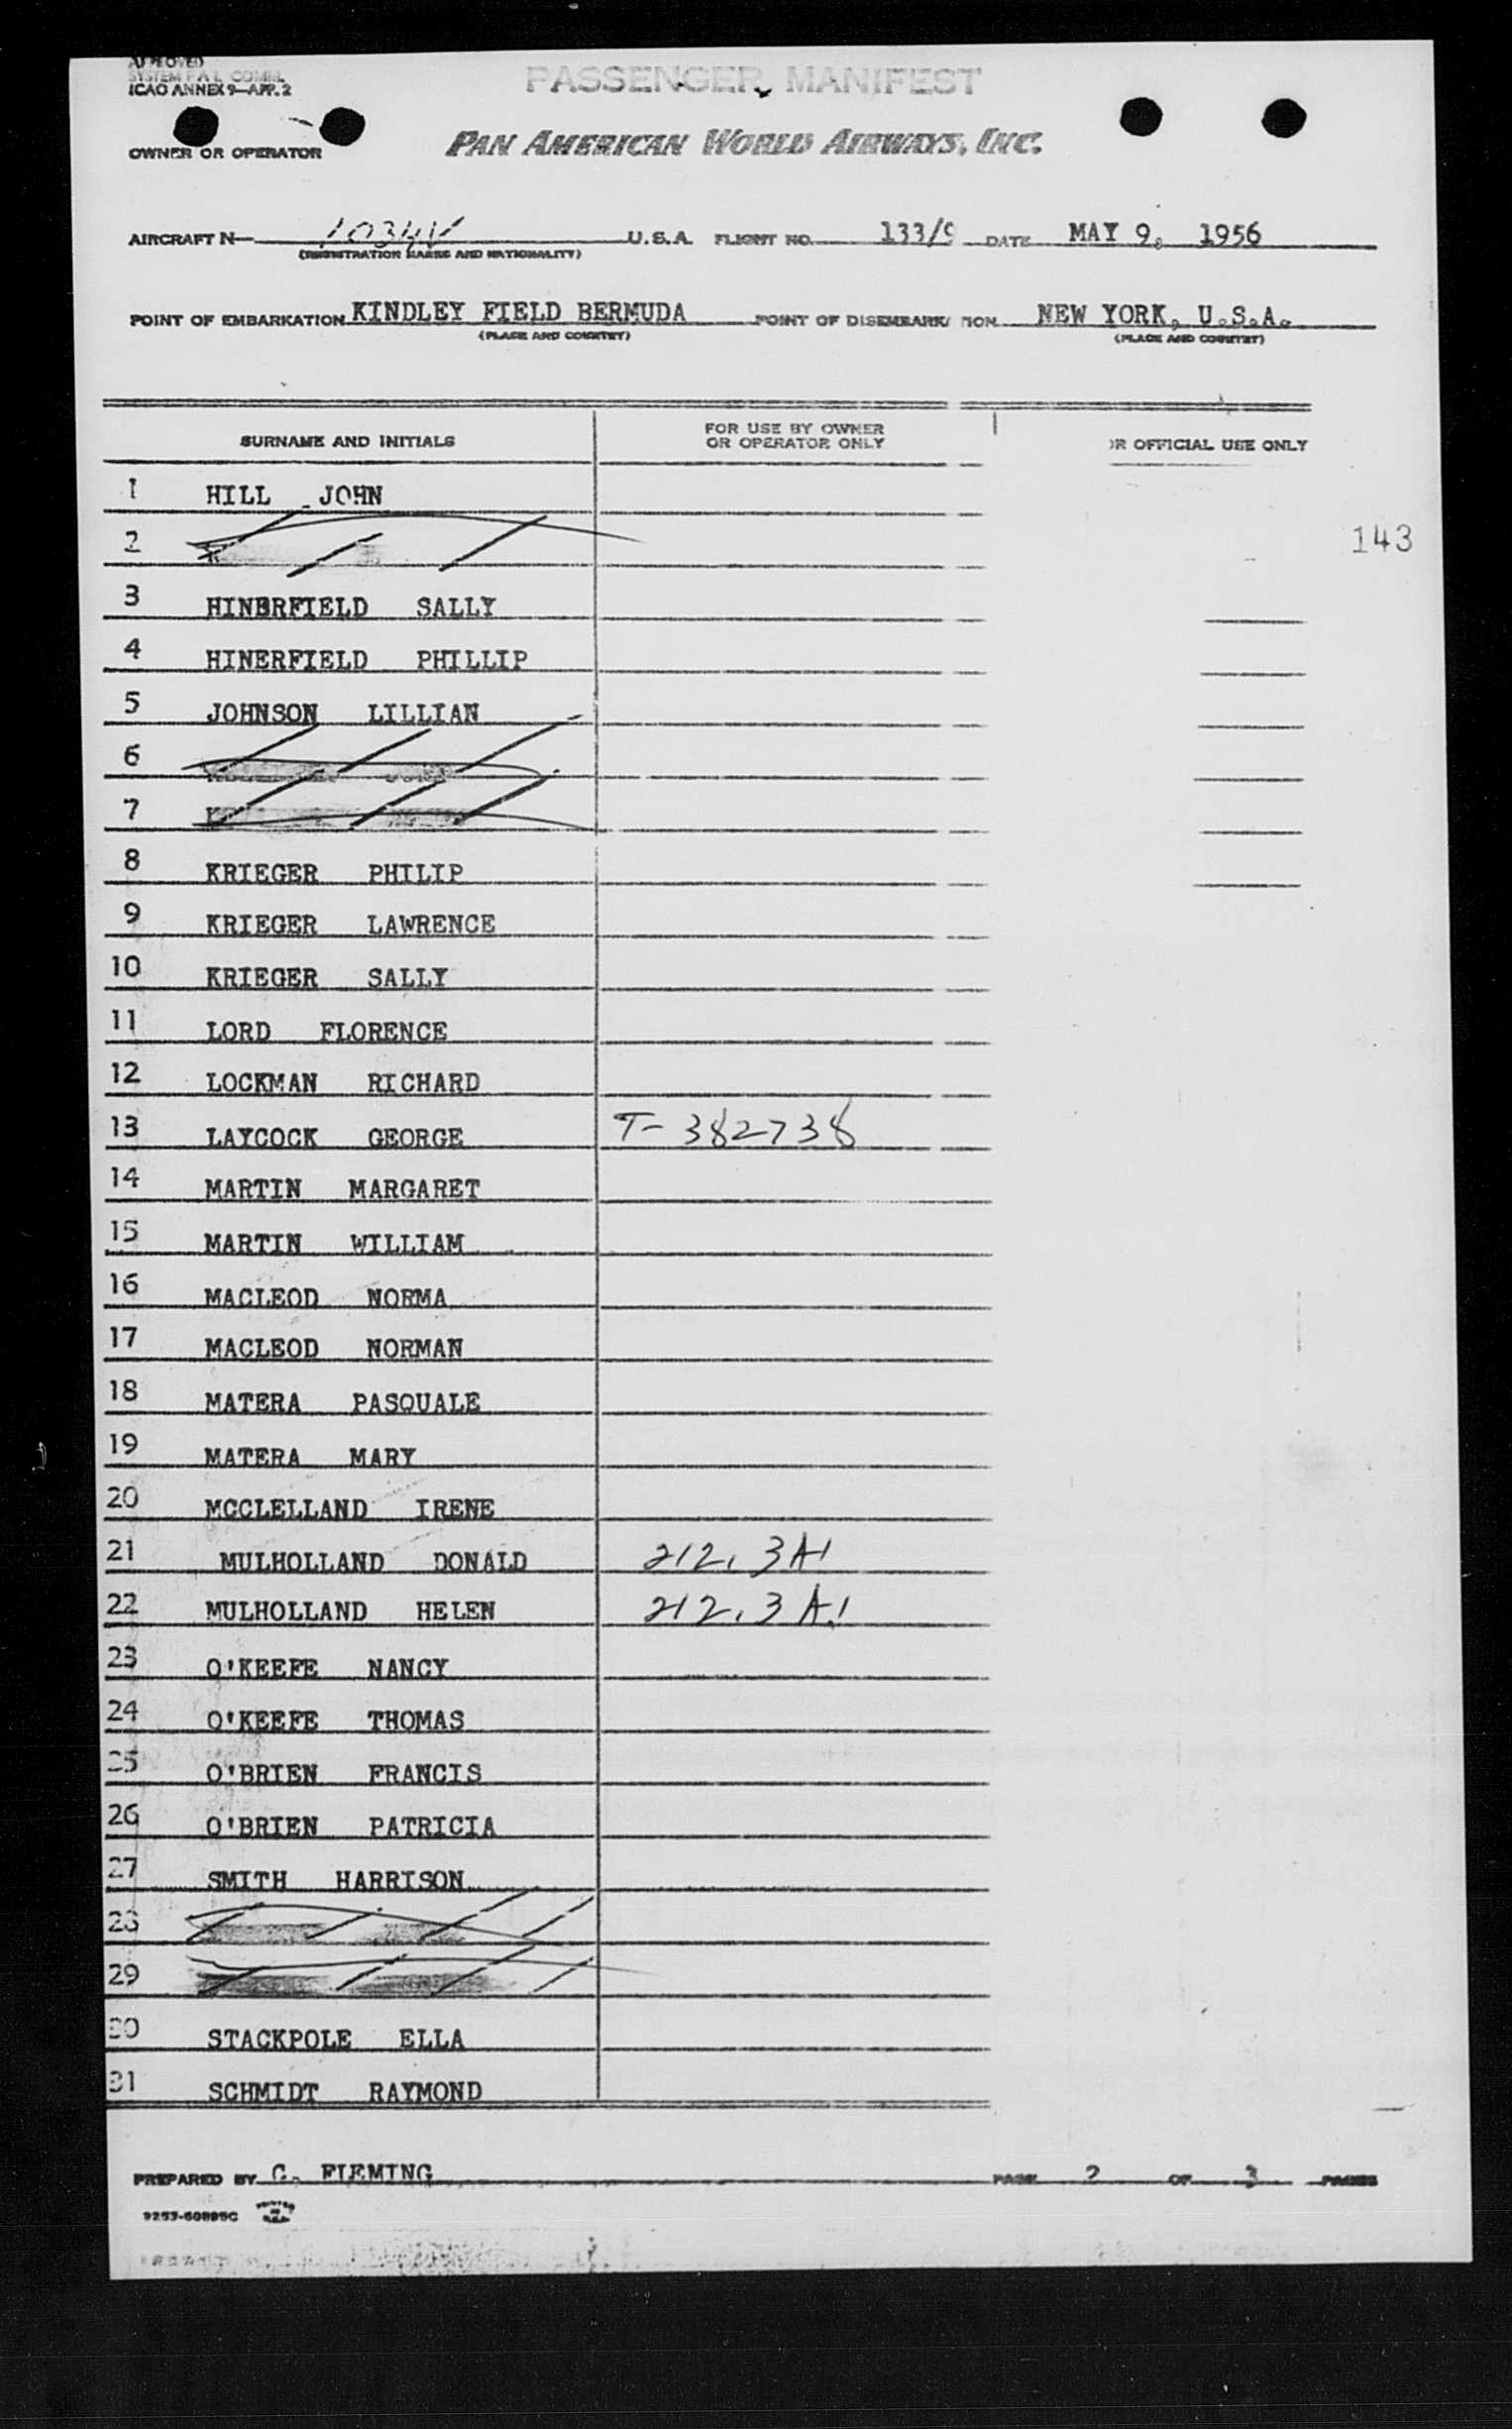 APPROVED
SYSTEM F A L COMM.
ICAO ANNEX 9—APP. 2
PASSENGER MANIFEST
OWNER OR OPERATOR PAN AMERICAN WORLD AIRWAYS, INC.
AIRCRAFT N— 1034V U.S.A. FLIGHT NO. 133/9 DATE MAY 9, 1956
(REGISTRATION MARKS AND NATIONALITY)
POINT OF EMBARKATION KINDLEY FIELD BERMUDA POINT OF DISEMBARKATION NEW YORK, U.S.A.
(PLACE AND COUNTRY) (PLACE AND COUNTRY)
SURNAME AND INITIALS FOR USE BY OWNER OR OPERATOR ONLY OR OFFICIAL USE ONLY
1 HILL JOHN
2
143
3 HINERFIELD SALLY
4 HINERFIELD PHILLIP
5 JOHNSON LILLIAN
6
7
8 KRIEGER PHILIP
9 KRIEGER LAWRENCE
10 KRIEGER SALLY
11 LORD FLORENCE
12 LOCKMAN RICHARD
13 LAYCOCK GEORGE T- 382738
14 MARTIN MARGARET
15 MARTIN WILLIAM
16 MACLEOD NORMA
17 MACLEOD NORMAN
18 MATERA PASQUALE
19 MATERA MARY
20 MCCLELLAND IRENE
21 MULHOLLAND DONALD 212.3A1
22 MULHOLLAND HELEN 212.3A1
23 O'KEEFE NANCY
24 O'KEEFE THOMAS
25 O'BRIEN FRANCIS
26 O'BRIEN PATRICIA
27 SMITH HARRISON
28
29
30 STACKPOLE ELLA
31 SCHMIDT RAYMOND
PREPARED BY C. FLEMING PAGE 2 OF 3 PAGES
9253-60895C PRINTED IN U.S.A.